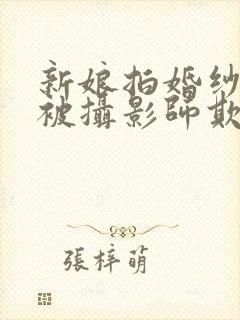 新娘拍婚紗
被攝影師欺
張梓萌